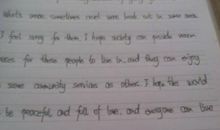 what's more, sometimes meet some in some area
I feel sorry for them. I hope society can provide warm
for these people to live in, and they can enjoy
some community services as others. I hope the world
be peaceful and full of love, and everyone can live